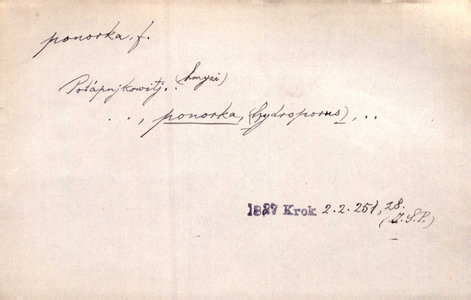 ponorka, f.
Potápnjkowitj.. (hmyzi)
. . , ponorka, (hydroporus), . .
1827 Krok 2. 2. 251, 28.
(J. S. P.)